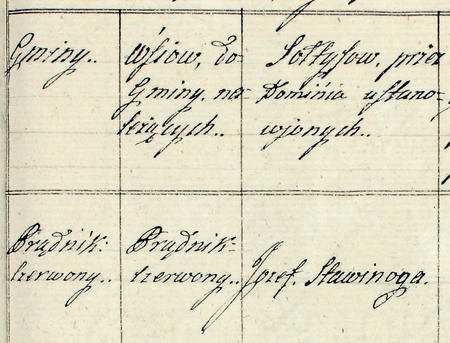 Gminy..
wsiow, do
Gminy. na-
leżących..
Sołtysow, przez
Dominia ustano-
wjonych..
Prądnik-
czerwony..
Prądnik-
czerwony..
Jozef. Stawinoga.